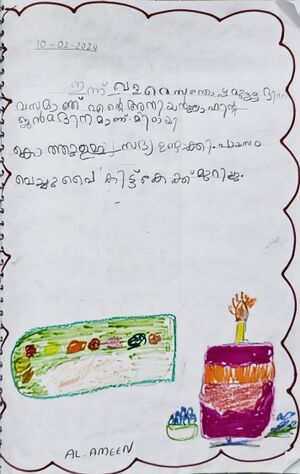 10-02-2024
ഇന്ന് വളരെ സന്തോഷമുള്ള ദി
വസമാണ് എന്റെ അനിയൻ
ജൻമദിനമാണ്
സദ്യ ഉണ്ടാക്കി. പായസം
വെച്ചു വൈകിട്ട് കേക്ക് മുറിച്ചു.
AL. AMEEN